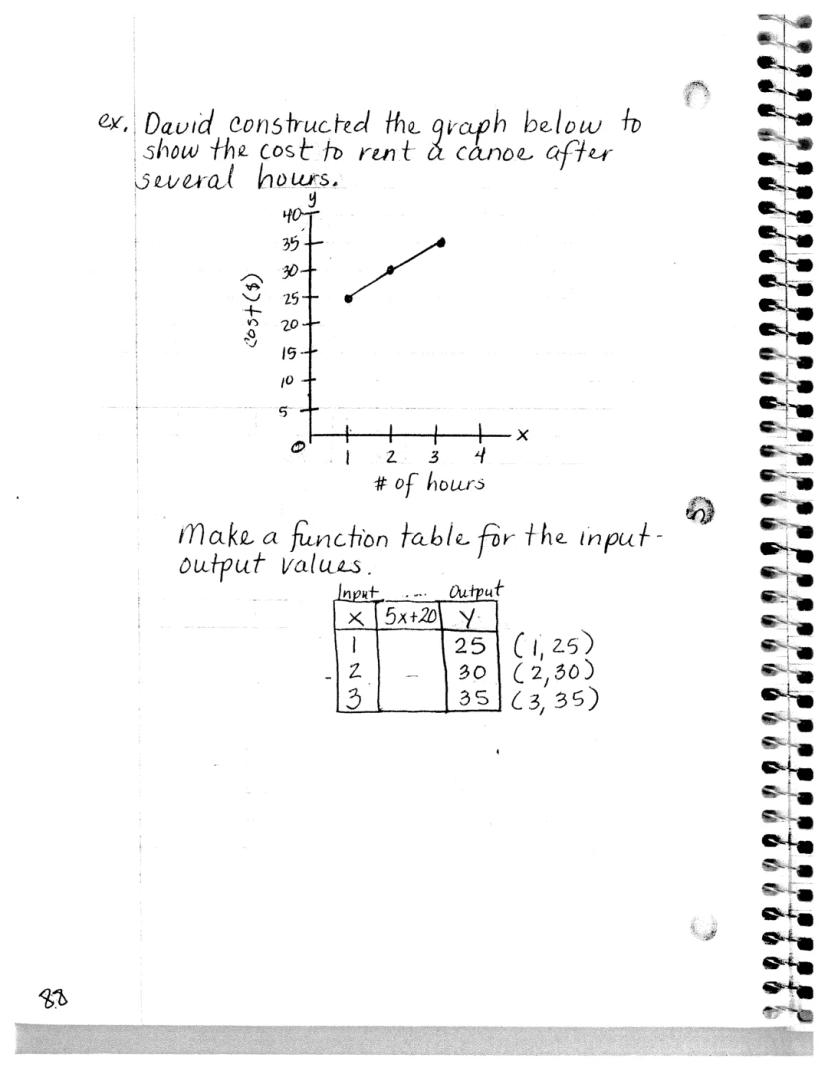 ex. David constructed the graph below to
show the cost to rent a canoe after
several hours.
y
40
35
30
25
20
15
10
5
0
cost ($)
x
1 2 3 4
# of hours
Make a function table for the input-
output values.
Input .... Output
x 5x+20 y
1 25 (1, 25)
2 30 (2, 30)
3 35 (3, 35)
88